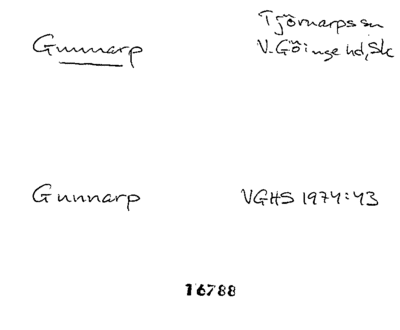 Gunnarp
Tjörnarps sn
V. Göinge hd, Sk
Gunnarp
VGHS 1974:43
16788